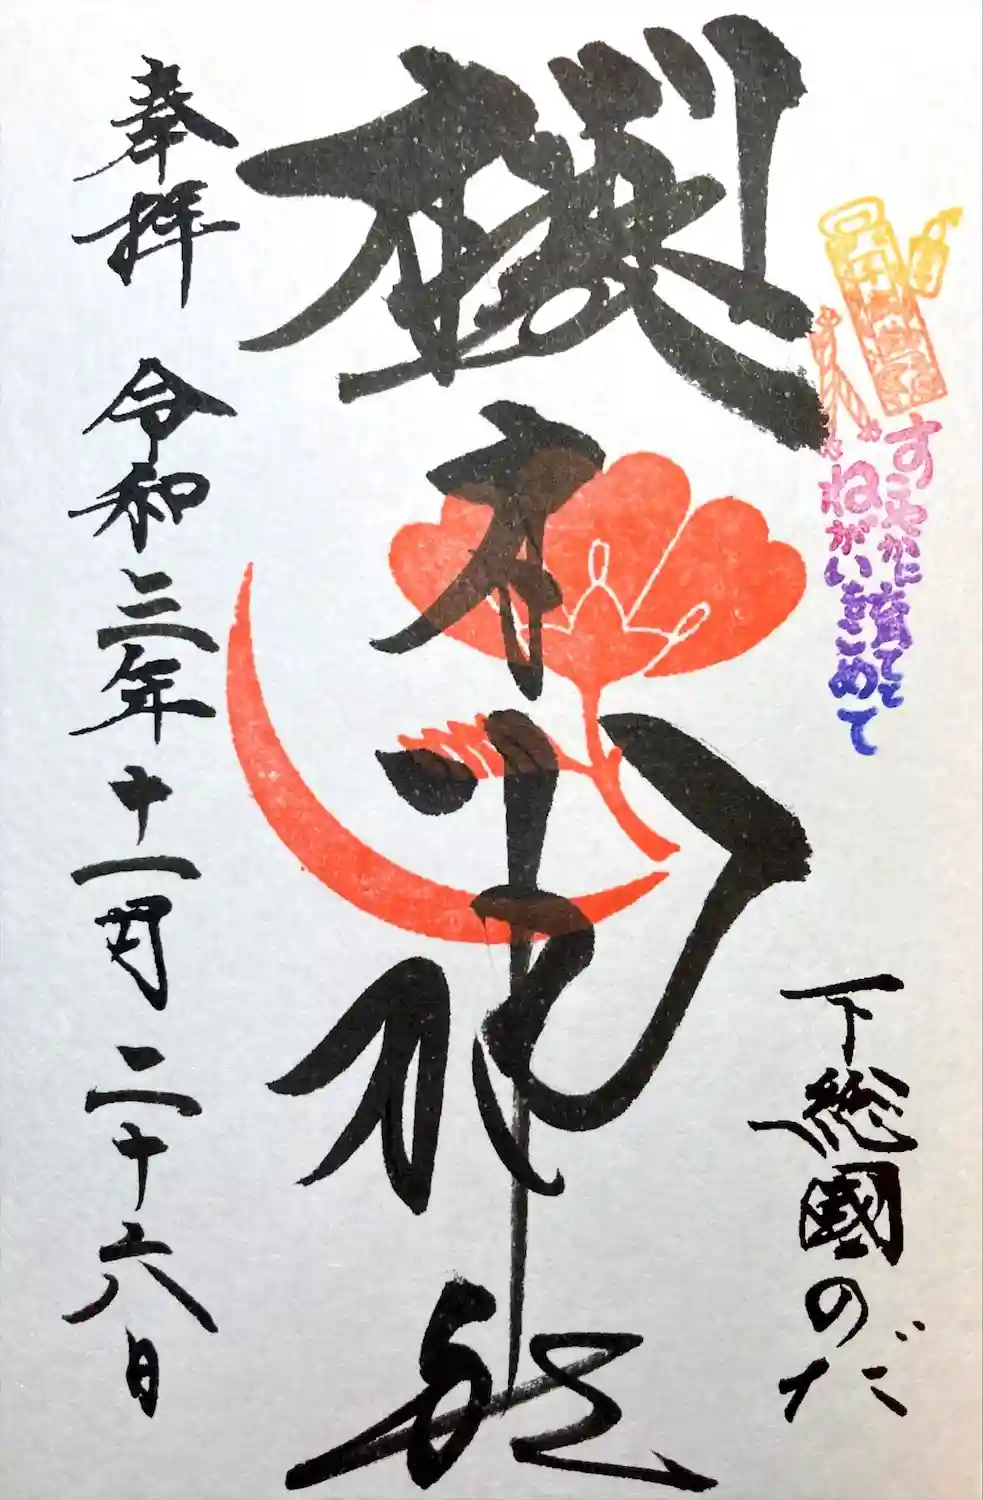 すこやかに育ててと
ねがいをこめて
下総國のだ
櫻木神社
奉拝
令和三年十一月二十六日